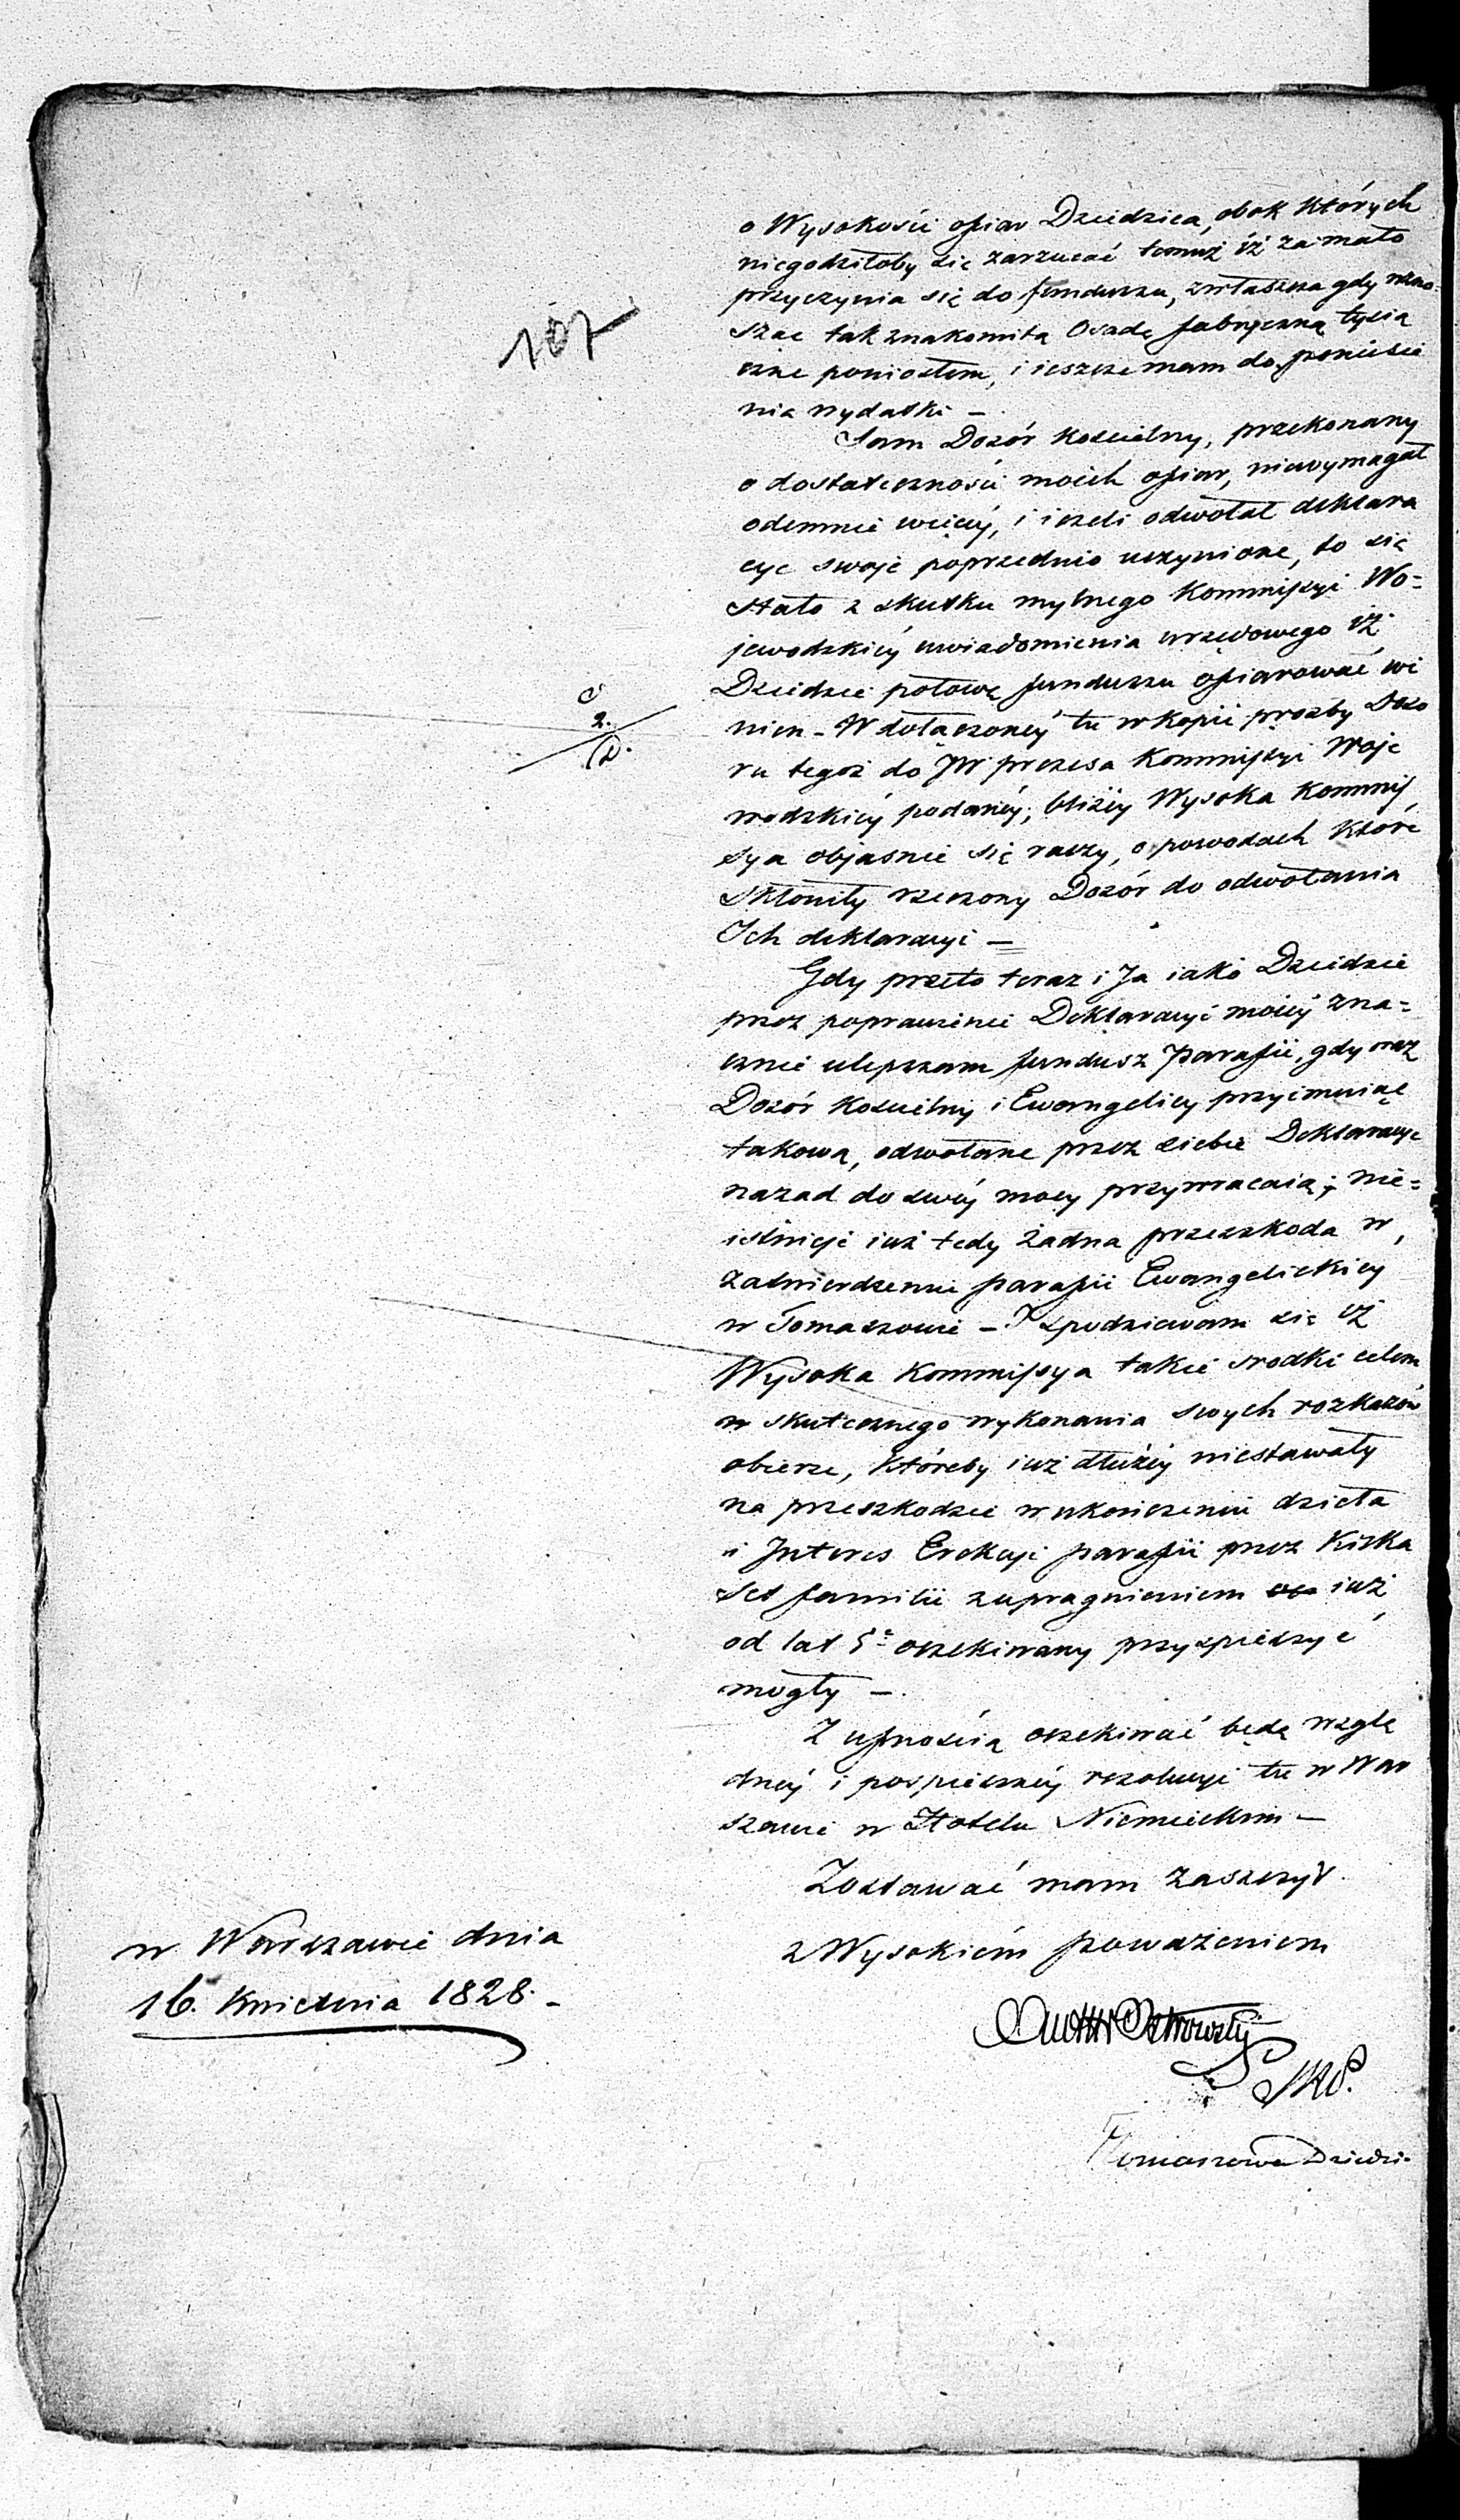 107
o Wysokości ofiar Dziedzica, obok których
niegodziłoby się zarzucać temuż iż za mało
przyczynia się do funduszu, zwłaszcza gdy wzno
sząc tak znakomitą Osadę fabryczną tysią
czne poniosłem, i ieszcze mam do poniesie
nia wydatki –
Sam Dozór kościelny, przekonany
o dostateczności moich ofiar, niewymagał
odemnie więcéy, i ieżeli odwołał deklara
cye swoje poprzednio uczynione, to się
stało z skutku mylnego Kommissyi Wo=
jewodzkiéy uwiadomienia urzędowego iż
Dziedzic połowę funduszu ofiarować wi
nien – W dołączonéy tu w kopii prozby Dozo
ru tegoż do JW prezesa Kommissyi Woje
wodzkiéy podanéy, bliżéy Wysoka Kommis
sya objasnić się raczy, o powodach które
skłoniły rzeczony Dozór do odwołania
Ich deklaracyi –
Gdy przeto teraz i Ja iako Dziedzic
przez poprawienie Deklaracyi moiéy zna=
cznie ulepszam fundusz Parafii, gdy oraz
Dozór Kościelny i Ewangelicy przyimuiąc
takową, odwołane przez siebie Deklaracye
nazad do swéy mocy przywracaią; nie=
istnieje iuż tedy żadna przeszkoda w
zatwierdzeniu parafii Ewangelickiey
w Tomaszowie – I spodziewam się iż
Wysoka Kommissya takie srodki celem
skutecznego wykonania swych rozkazów
obierze, któreby iuż dłużéy niestawały
na przeszkodzie w ukończeniu dzieła
i Interes Erekcyi parafii przez kilka
set familii z upragnieniem iuż
od lat 5 oczekiwany przyspieszyć
mogły –
Z ufnością oczekiwać będę wzglę
dnéy i pospiesznéy rezolucyi tu w War
szawie w Hotelu Niemieckim –
Zostawać mam zaszczyt
z Wysokiém poważeniem
w Warszawie dnia
16. Kwietnia 1828. –
Ostrowski
Tomaszowa Dziedzic